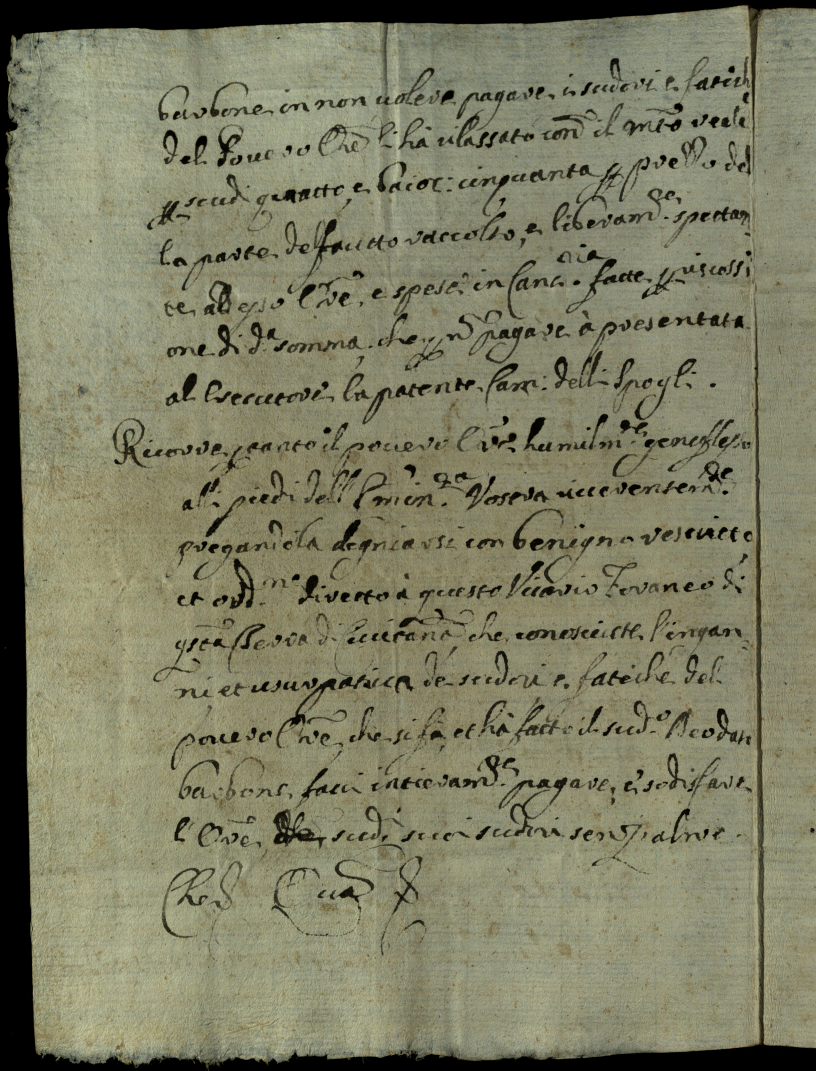 barbone in non volere pagare i sudori e fatich
del Povero Ore li hà rilassato con il mto reale
p scudi quatto, e baioc: cinquanta p prezzo del
la parte del frutto raccolto, e liberamte spettan
te ad esso Ore, e spese in Cancria fatte p riscossi
one di da somma, che p n pagare à presentata
al Esecutore la patente Cam: delli Spogli.
Ricorre ptanto il povero Ore humilmte genuflesso
alli piedi dell Eminza Vostra
pregandola degniarsi con benigno rescritto
et ordne diretto à questo Vicario Foraneo di
qsta Terra di Civitana, che conosciute l'ingan
ni et de sudori e fatiche del
povero Ore, che si fa, et hà fatto il sudo Beodan
barbone, facci intieramte pagare, e sodisfare
l'Ore, sudi suoi sudori senz altre.
Che